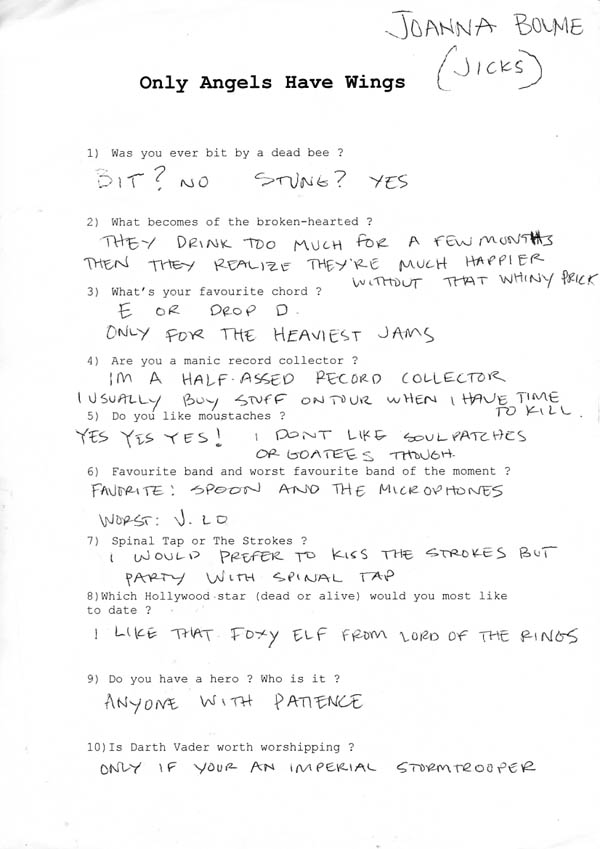 JOANNA BOLME
(JICKS)
Only Angels Have Wings
1) Was you ever bit by a dead bee ?
BIT? NO STUNG? YES
2) What becomes of the broken-hearted ?
THEY DRINK TOO MUCH FOR A FEW MONTHS
THEN THEY REALIZE THEY'RE MUCH HAPPIER
WITHOUT THAT WHINY PRICK
3) What's your favourite chord ?
E OR DROP D.
ONLY FOR THE HEAVIEST JAMS
4) Are you a manic record collector ?
IM A HALF-ASSED RECORD COLLECTOR
I USUALLY BUY STUFF ON TOUR WHEN I HAVE TIME
TO KILL.
5) Do you like moustaches ?
YES YES YES! I DON'T LIKE SOULPATCHES
OR GOATEES THOUGH.
6) Favourite band and worst favourite band of the moment ?
FAVORITE: SPOON AND THE MICROPHONES
WORST: J. LO
7) Spinal Tap or The Strokes ?
I WOULD PREFER TO KISS THE STROKES BUT
PARTY WITH SPINAL TAP
8)Which Hollywood star (dead or alive) would you most like
to date ?
I LIKE THAT FOXY ELF FROM LORD OF THE RINGS
9) Do you have a hero ? Who is it ?
ANYONE WITH PATIENCE
10)Is Darth Vader worth worshipping ?
ONLY IF YOUR AN IMPERIAL STORMTROOPER